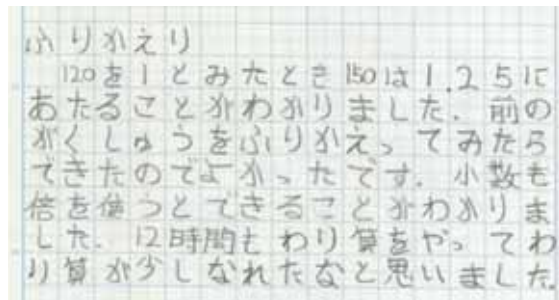 ふりかえり
120を1とみたとき150は1.25に
あたることがわかりました。前の
がくしゅうをふりかえってみたら
できたのでよかったです。小数も
倍を使うとできることがわかりま
した。12時間もわり算をやってわ
り算が少しなれたなと思いました。